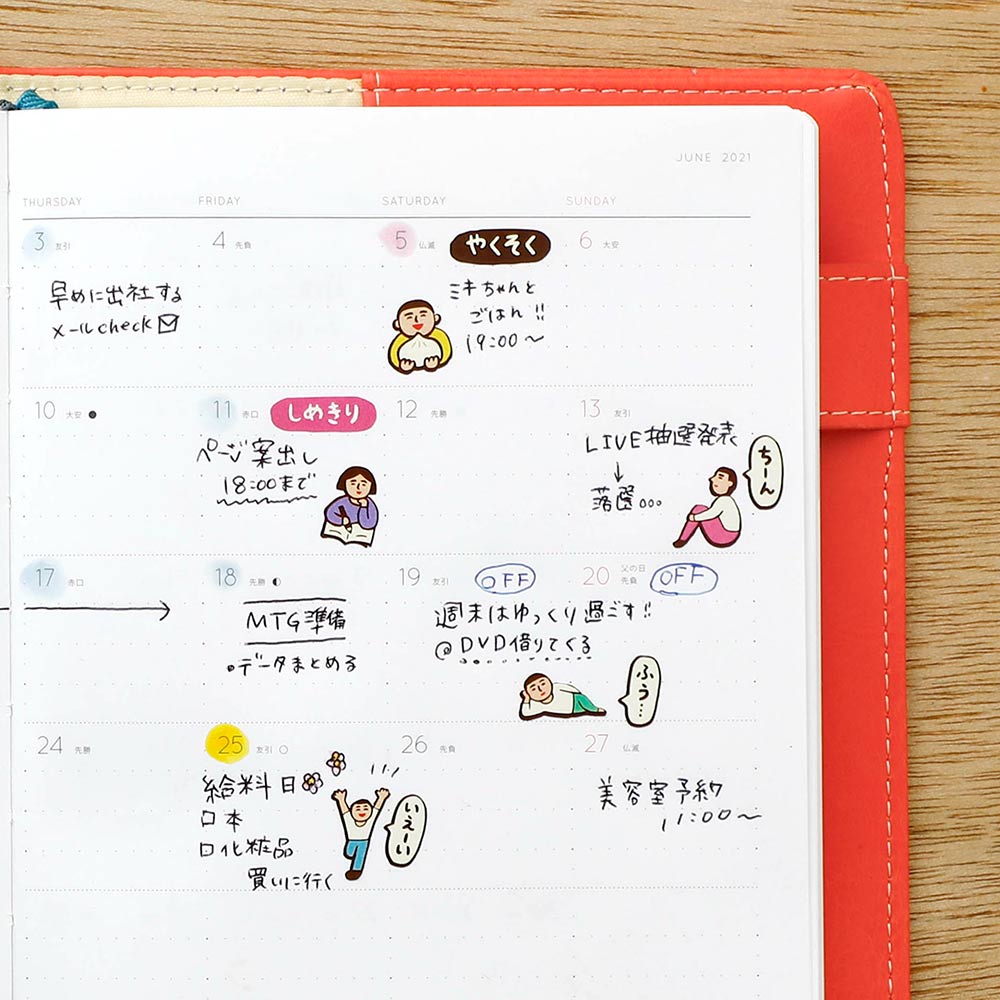 JUNE 2021
THURSDAY FRIDAY SATURDAY SUNDAY
3 友引
早めに出社する
メールcheck☑
4 先負
5 仏滅 やくそく
ミキちゃんと
ごはん!!
19:00〜
6 大安
10 大安 ●
11 赤口 しめきり
ページ案出し
18:00まで
12 先勝
13 友引
LIVE抽選発表
↓
落選...
ちーん
17 赤口
18 先勝
MTG準備
•データまとめる
19 友引 OFF
20 父の日
先負 OFF
週末はゆっくり過ごす!!
@DVD借りてくる
ふう…
24 先勝
25 友引 ○
給料日
□本
□化粧品
買いに行く
いえーい
26 先負
27 仏滅
美容室予約
11:00〜